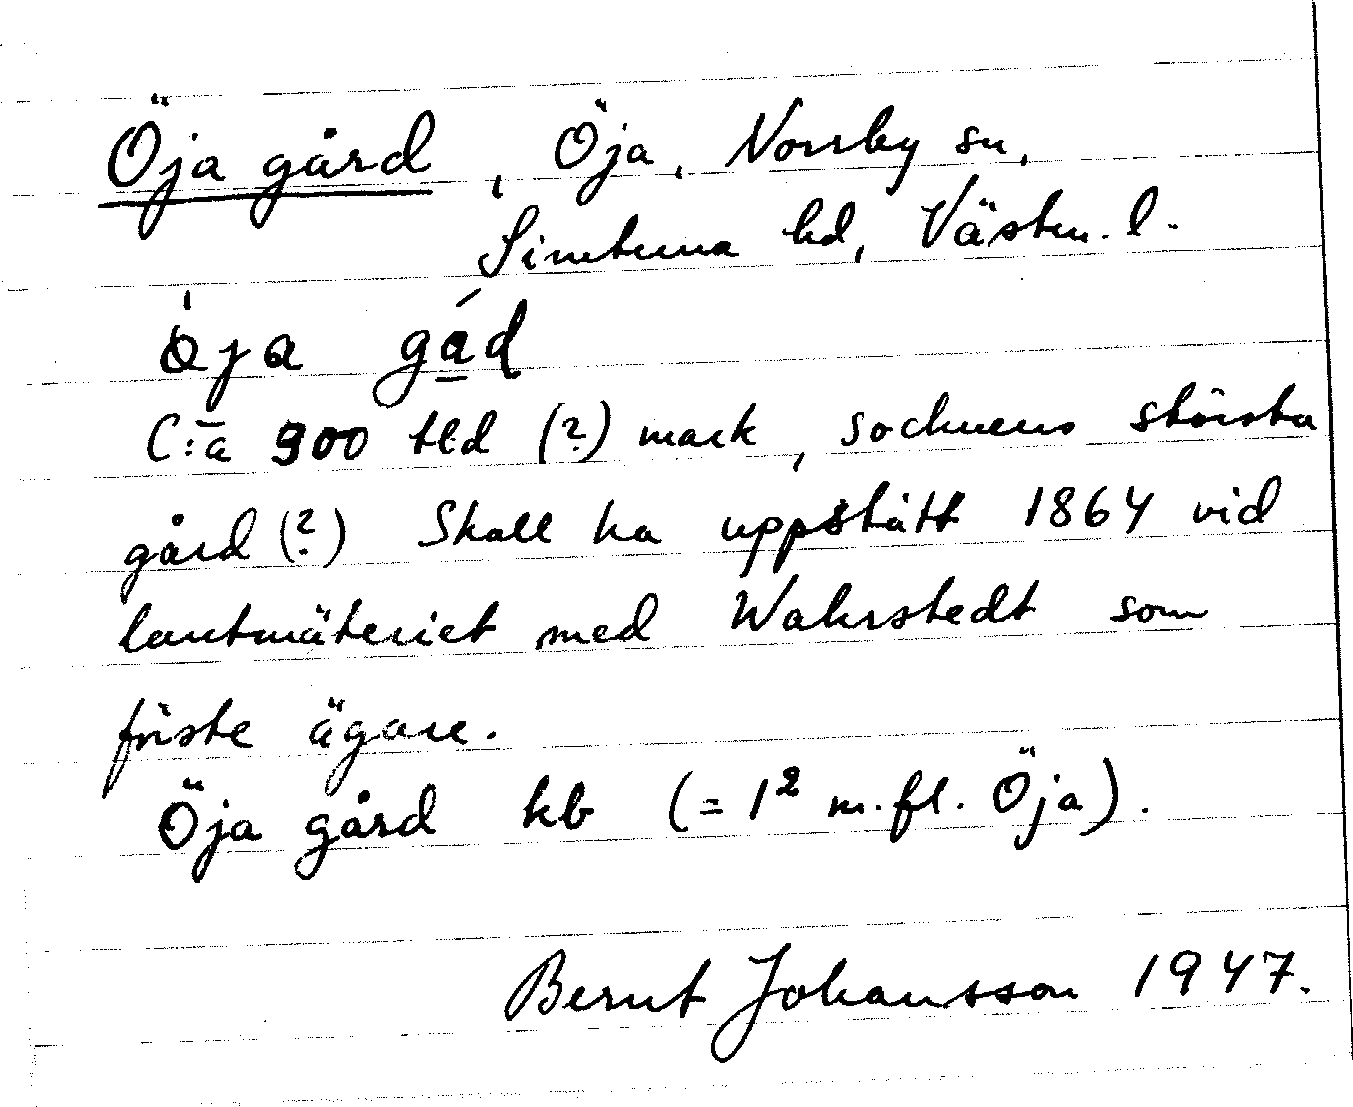 Öja gård, Öja, Norrby sn,
Simtuna hd, Västm. l.
ö́ja gá̱d
C:a 900 tld (?) mark, socknens största
gård (?) Skall ha uppstått 1864 vid
lantmäteriet med Wahrstedt som
förste ägare.
Öja gård kb (= 1² m.fl. Öja).
Bernt Johansson 1947.